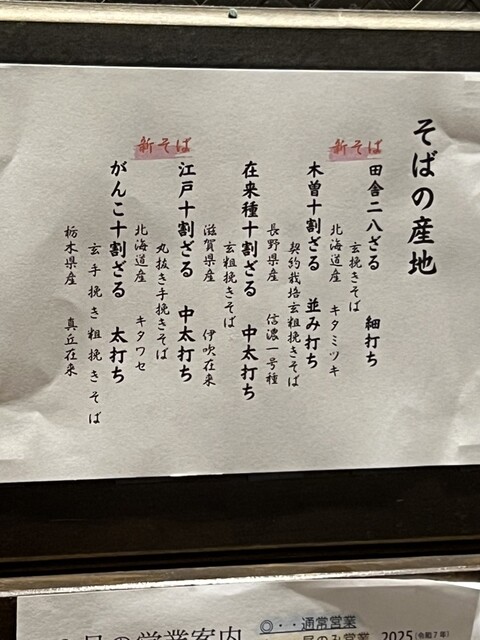 そばの産地
新そば
田舎二八ざる 細打ち
玄挽きそば
北海道産 キタミツキ
木曽十割ざる 並み打ち
契約栽培玄粗挽きそば
長野県産 信濃一号種
在来種十割ざる 中太打ち
玄粗挽きそば
滋賀県産 伊吹在来
新そば
江戸十割ざる 中太打ち
丸抜き手挽きそば
北海道産 キタワセ
がんこ十割ざる 太打ち
玄手挽き粗挽きそば
栃木県産 真丘在来
月の営業案内
◎・・通常営業
昼のみ営業
2025(令和7年)